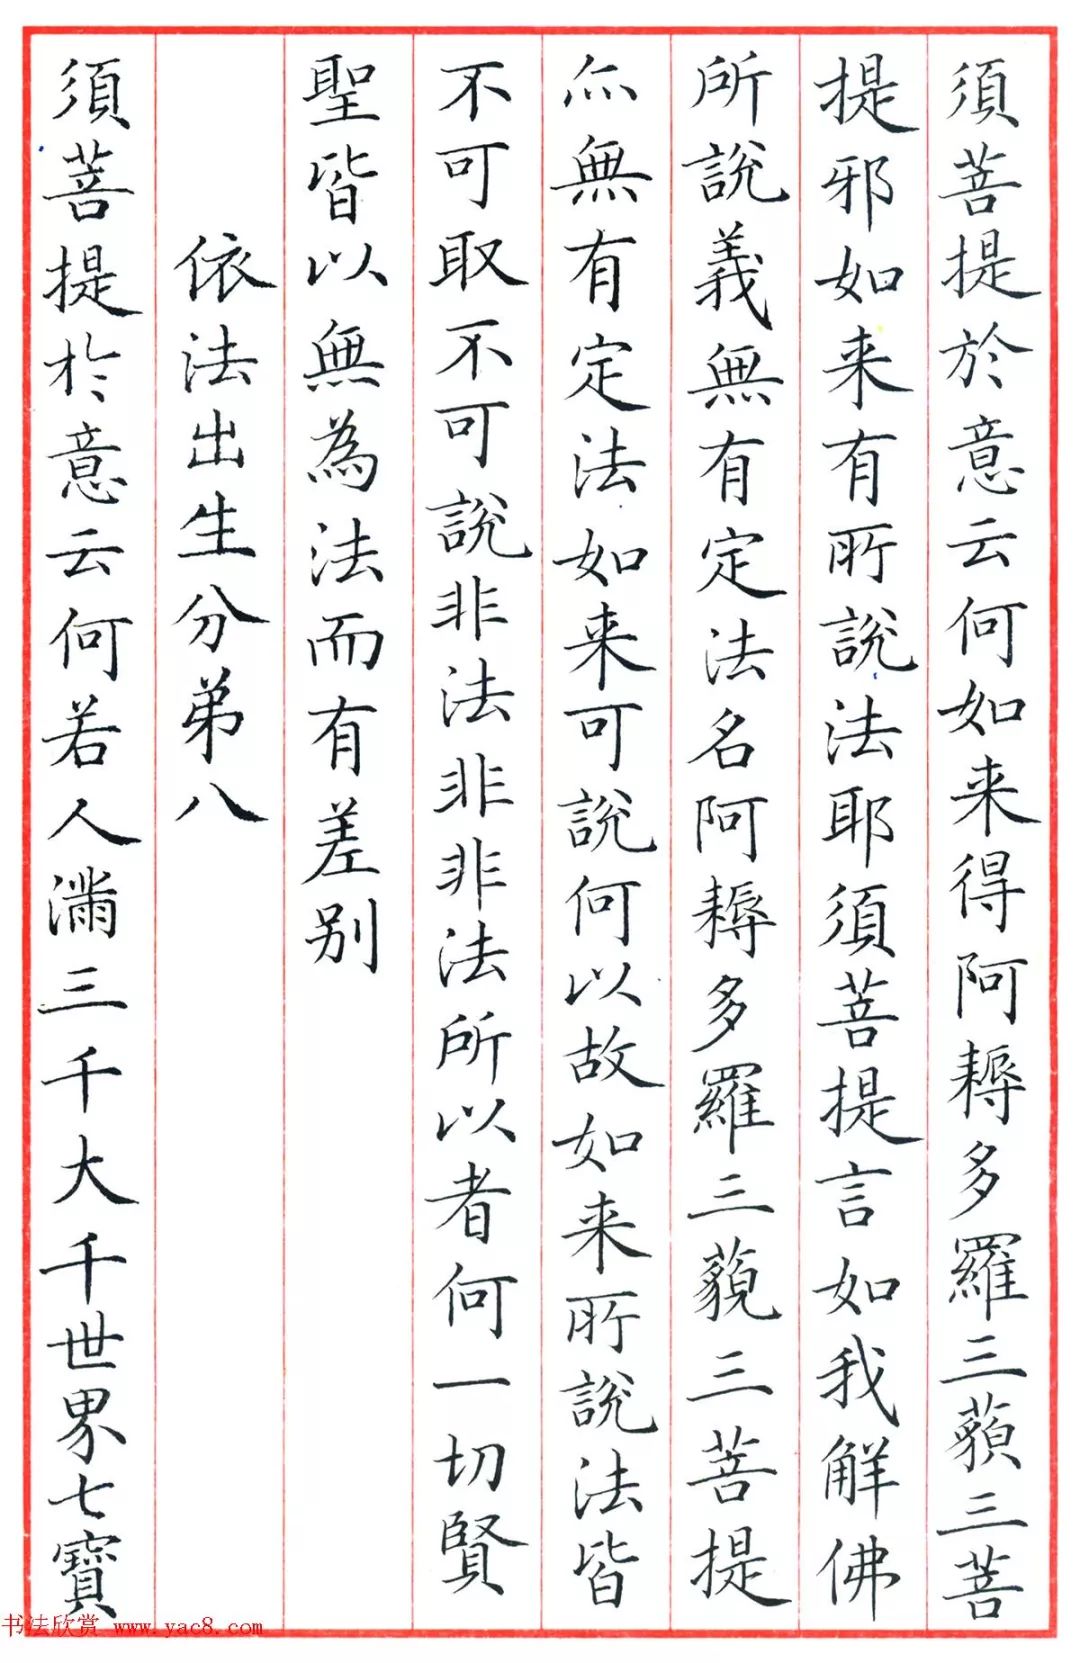 須菩提於意云何如来得阿耨多羅三藐三菩
提邪如来有所說法耶須菩提言如我解佛
所說義無有定法名阿耨多羅三藐三菩提
亦無有定法如来可說何以故如来所說法皆
不可取不可說非法非非法所以者何一切賢
聖皆以無為法而有差别
依法出生分弟八
須菩提於意云何若人滿三千大千世界七寶
书法欣赏 www.yac8.com